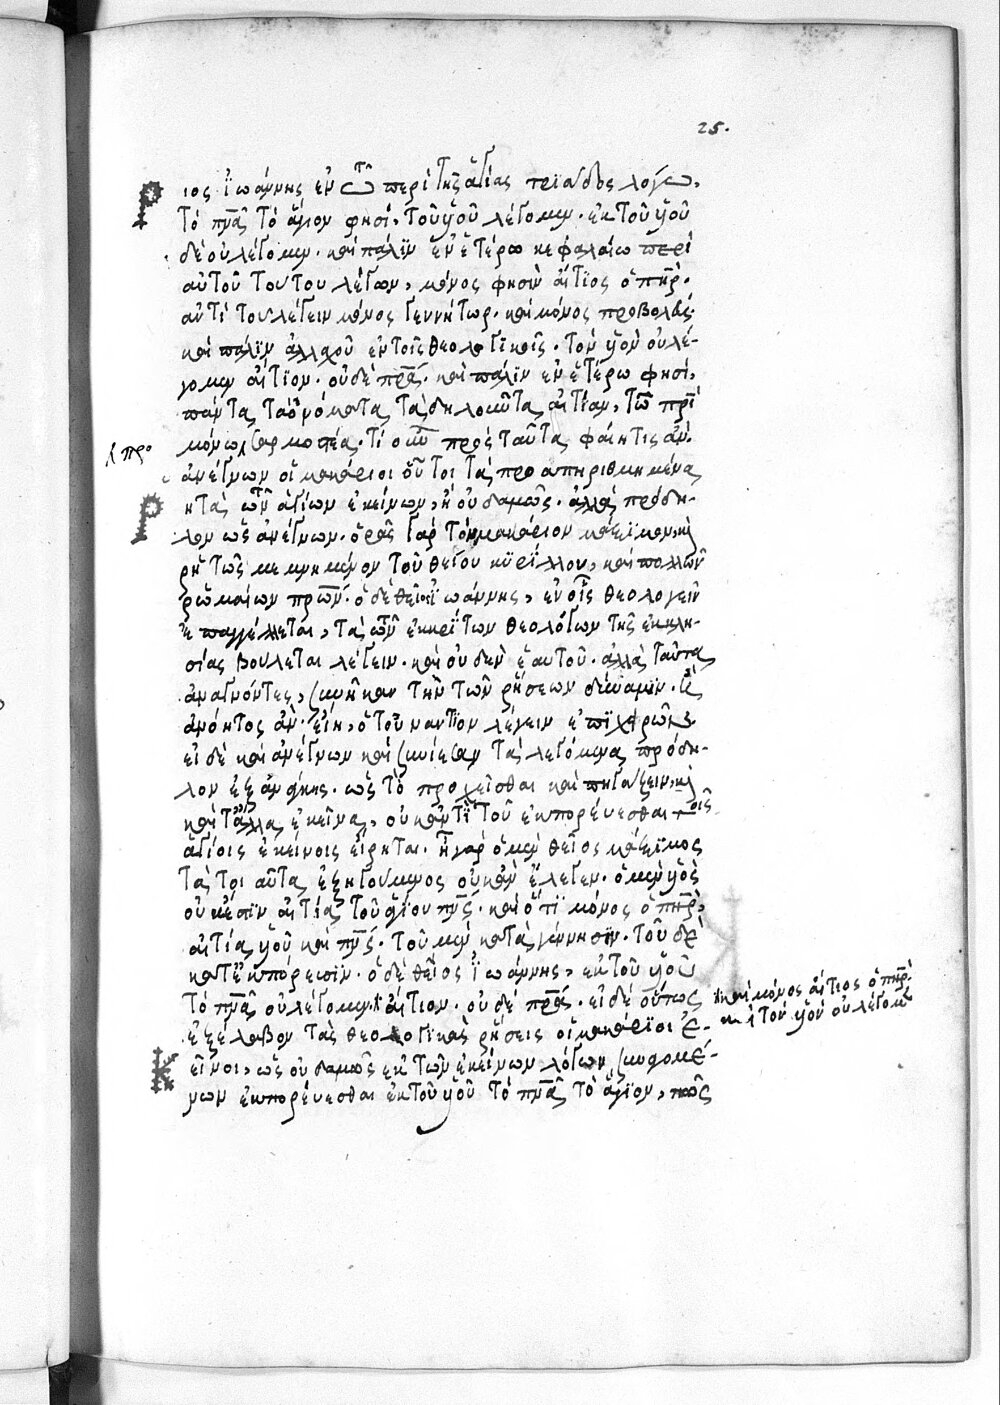 25.
ιος ϊωάννης ἐν τῶ περὶ τῆς ἁγίας τριάδος λόγω,
τὸ πνᾶ τὸ ἅγιον φησὶ, τοῦ υἱοῦ λέγομεν. ἐκ τοῦ υἱοῦ
δὲ οὐ λέγομεν. καὶ πάλϊν ἐν ἑτέρω κεφαλαίω περὶ
αὐτοῦ τούτου λέγων, μόνος φησὶν αἴτϊος ὁ πηρ.
ἀντὶ τοῦ λέγειν μόνος γεννήτωρ. καὶ μόνος προβολεύς.
καὶ πάλϊν ἀλλαχοῦ ἐν τοῖς θεολογϊκοῖς. τὸν υἱὸν οὐ λέ-
γομεν αἴτϊον. οὐδὲ πρᾶ. καὶ πάλϊν ἐν ἑτέρω φησὶ,
πάντα τὰ ὀνόματα τὰ δηλοῦντα αἰτίαν, τῶ πρϊ
μόνω ἁρμοστέα. τί οὖν πρὸς ταῦτα φαίη τις ἄν.
λ προ
ἀνέγνων οἱ μακάριοι οὗτοι τὰ προαπηριθμημένα
ῥητὰ τῶν ἁγίων ἐκείνων, ἢ οὐδαμῶς. ἀλλὰ πρόδη-
λον ὡς ἀνέγνων. ὁρᾶς γὰρ τὸν μακάριον μάξϊμον, καὶ
ῥητῶς μεμνημένον τοῦ θείου κϋρίλλου, καὶ πολλῶν
ῥωμαίων πρων. ὁ δὲ θεῖος ϊωάννης, ἐν οἷς θεολογεῖν
ἐπαγγέλλεται, τὰ τῶν ἐκκρίτων θεολόγων τῆς ἐκκλη-
σίας βούλεται λέγειν. καὶ οὐδὲν ἑαυτοῦ. ἀλλὰ ταῦτα
ἀναγνόντες, συνῆκαν τὴν τῶν ῥήσεων δύναμϊν. καὶ
ἀνόητος ἂν εἴη, ὁ τοὐναντϊον λέγειν ἐπϊχειρῶν.
εἰ δὲ καὶ ἀνέγνων καὶ συνίεσαν τὰ λεγόμενα πρόδη-
λον ἐξ ἀνάγκης. ὡς τὸ προχεῖσθαι καὶ πηγάζειν, καὶ
καὶ τἄλλα ἐκεῖνα, οὐκ ἀντὶ τοῦ ἐκπορεύεσθαι τοῖς
ἁγίοις ἐκείνοις εἴρηται. ἦ γὰρ ὁ μὲν θεῖος μάξϊμος
τά τοι αὐτὰ ἐξηγούμενος οὐκ ἂν ἔλεγεν. ὁ μὲν υἱὸς
οὐκ ἔστϊν αἰτία τοῦ ἁγίου πνς. καὶ ὅτϊ μόνος ὁ πηρ,
αἰτία υἱοῦ καὶ πνς. τοῦ μὲν κατὰ γέννησϊν. τοῦ δὲ
κατ' ἐκπόρευσϊν. ὁ δὲ θεῖος ϊωάννης, ἐκ τοῦ υἱοῦ
τὸ πνᾶ οὐ λέγομεν. αἴτιον. οὐδὲ πρᾶ. εἰ δὲ οὕτως
καὶ μόνος αἴτιος ὁ πηρ.
καὶ τὸν υἱὸν οὐ λέγομεν
ἐξέλαβον τὰς θεολογϊκὰς ῥήσεις οἱ μακάρϊοι ἐ-
κεῖνοι, ὡς οὐδαμῶς ἐκ τῶν ἐκείνων λόγων συναγομέ-
νων ἐκπορεύεσθαι ἐκ τοῦ υἱοῦ τὸ πνᾶ τὸ ἅγϊον, πῶς